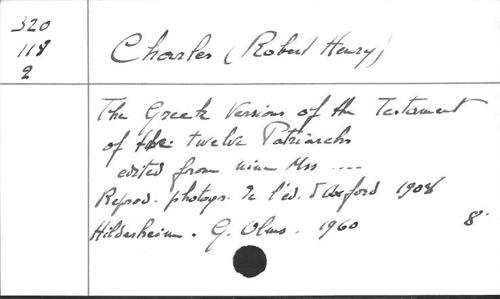 320
118
2
Charles (Robert Henry)
The Greek Versions of the Testament
of the twelve Patriarchs
edited from nine Mss ....
Reprod. photogr. de l'éd. d'Oxford 1908
Hildesheim. G. Olms. 1960 8°